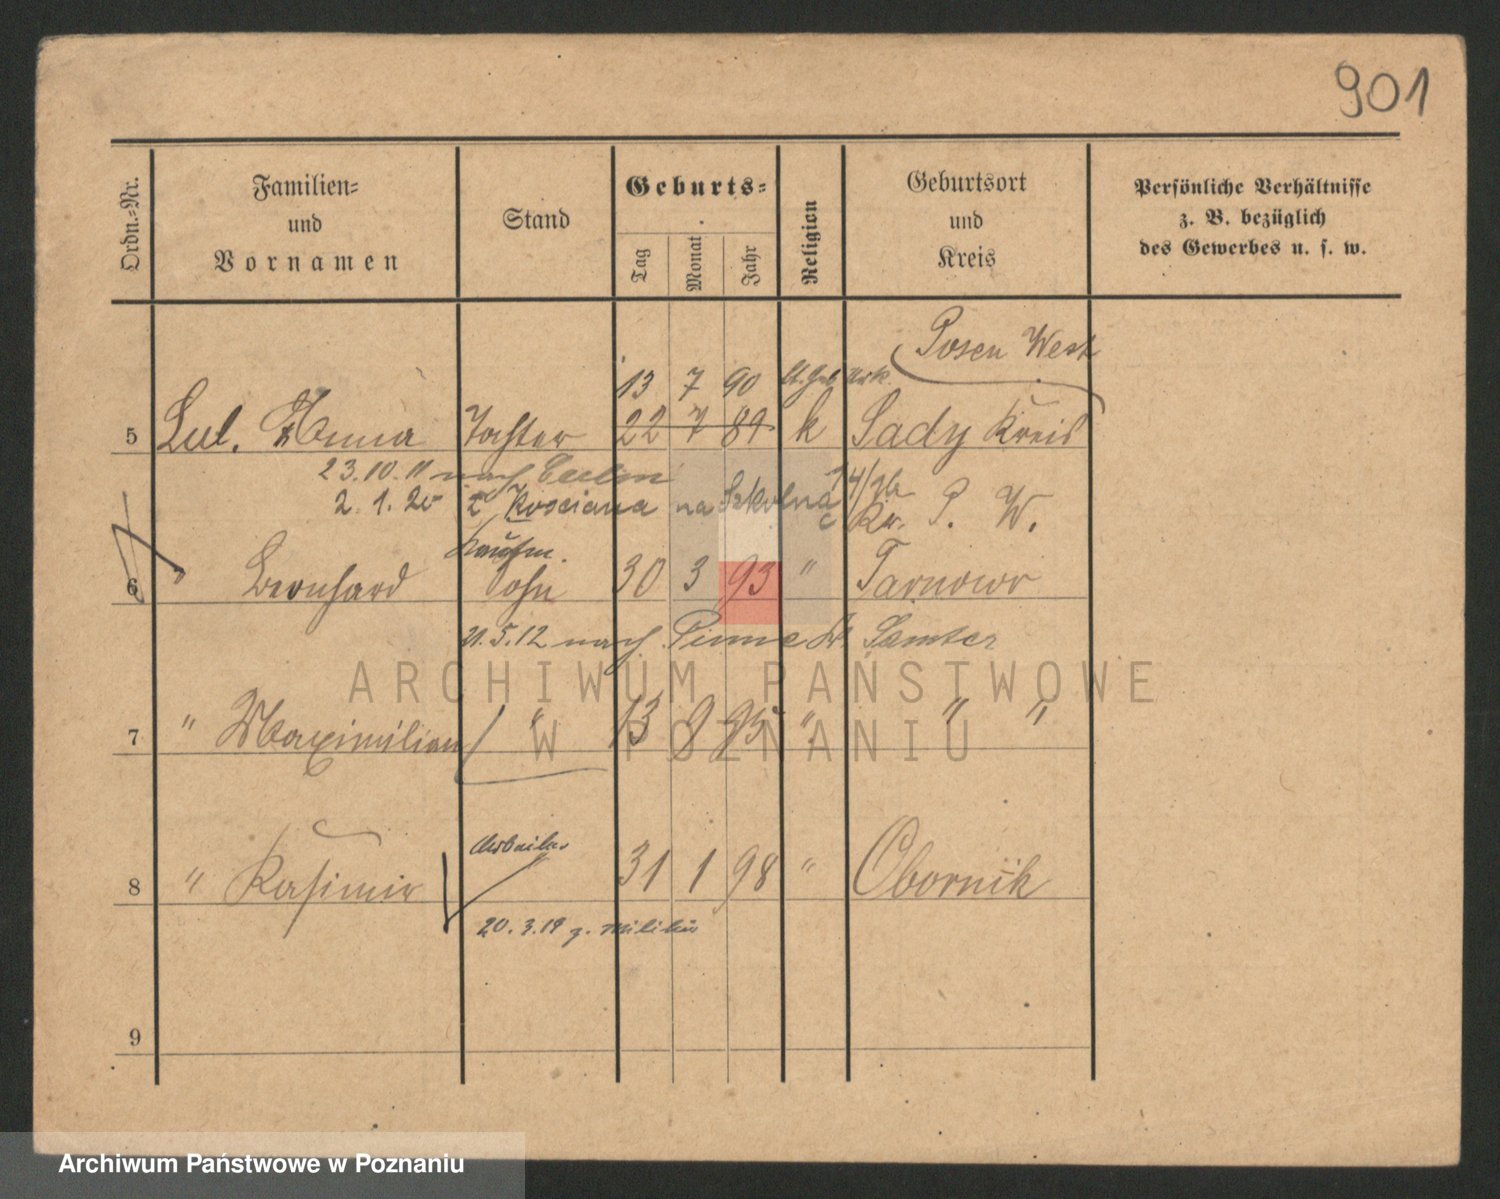 901
Ordn.-Nr.
Familien-
und
Vornamen
Stand
Geburts-
Tag
Monat
Jahr
Religion
Geburtsort
und
Kreis
Persönliche Verhältnisse
z. B. bezüglich
des Gewerbes u. s. w.
Posen West
13 7 90
5 Lul. Anna Tochter 22 7 89 k Sady Kreis
23.10.11 nach
2.1.20 z Kosciana na Szkolna
Kr. P. W.
Kaufm.
6 Bernhard Sohn 30 3 93 " Tarnowo
21.5.12 nach Pinne Kr. Samter
7 " Maximilian " 13 9 95 " " "
Arbeiter
8 " Kasimir 31 1 98 " Obornik
20.3.19 z. Militär
9
ARCHIWUM PAŃSTWOWE
W POZNANIU
Archiwum Państwowe w Poznaniu